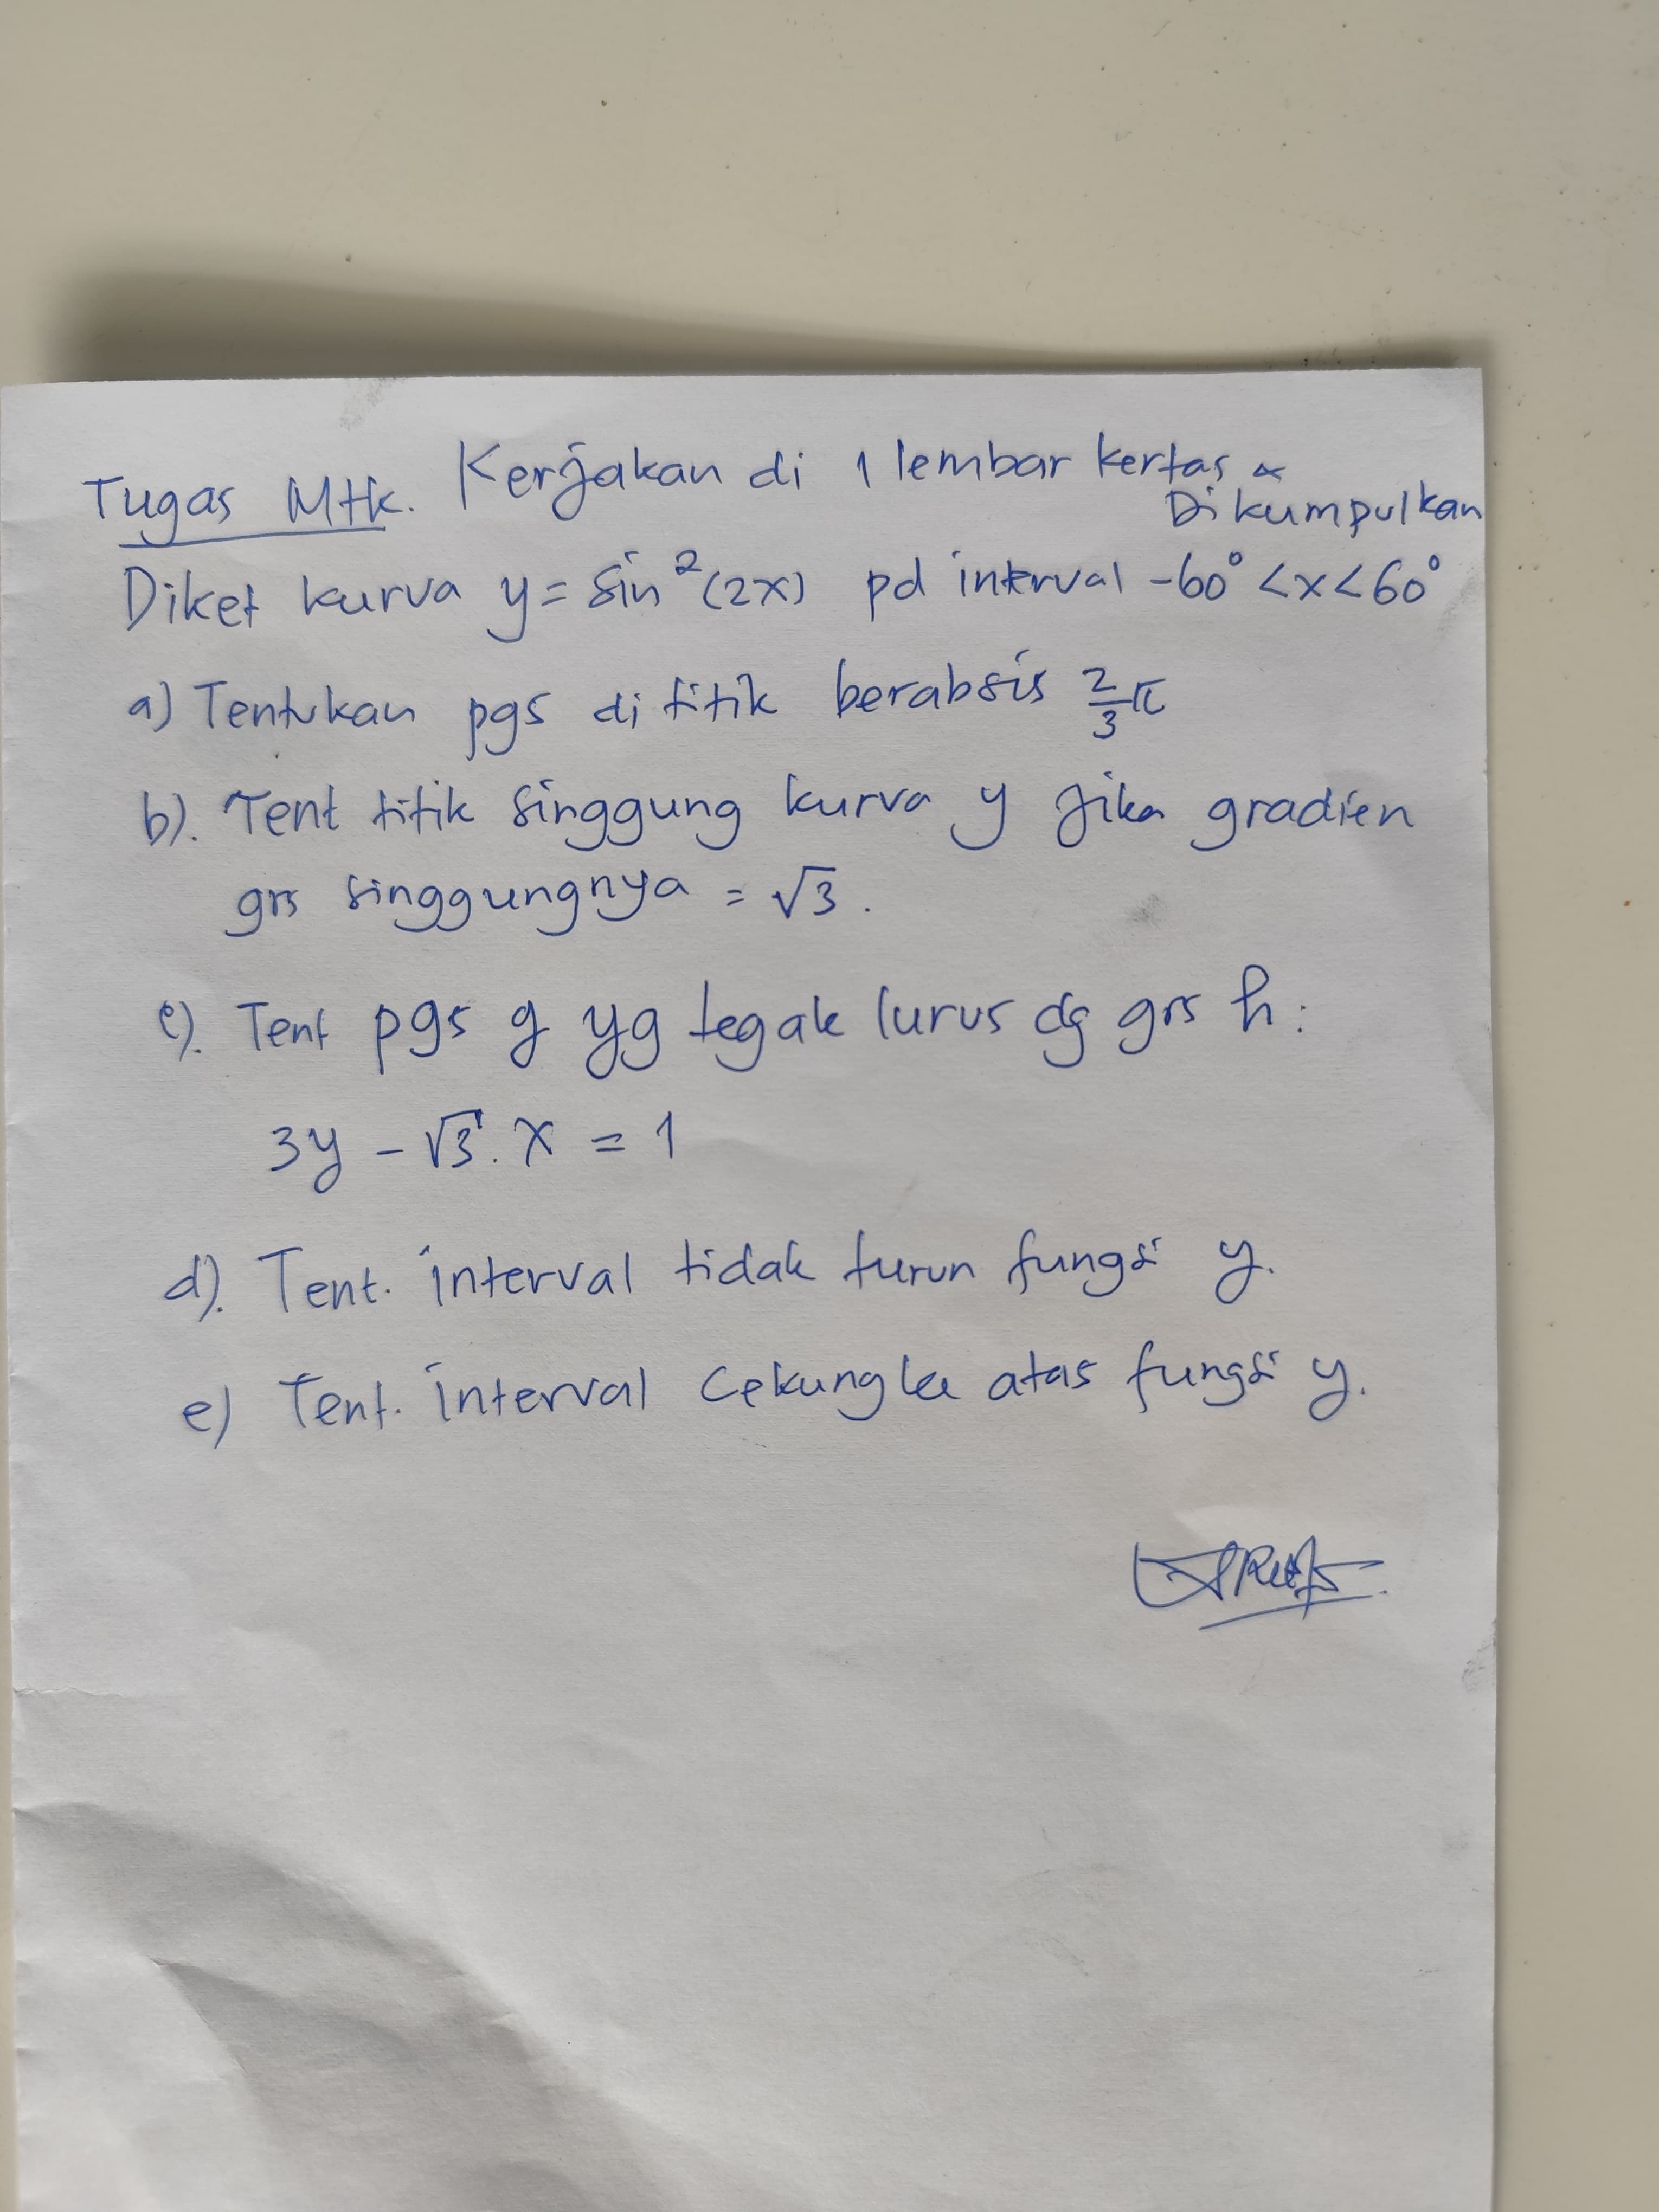 Tugas Mtk. Kerjakan di 1 lembar kertas &
Dikumpulkan
Diket kurva y = sin²(2x) pd interval -60° < x < 60°
a) Tentukan pgs di titik berabsis 2/3 π
b). Tent titik singgung kurva y jika gradien
grs singgungnya = √3.
c). Tent pgs g yg tegak lurus dg grs h:
3y - √3. x = 1
d). Tent. interval tidak turun fungsi y.
e) Tent. interval Cekung ke atas fungsi y.